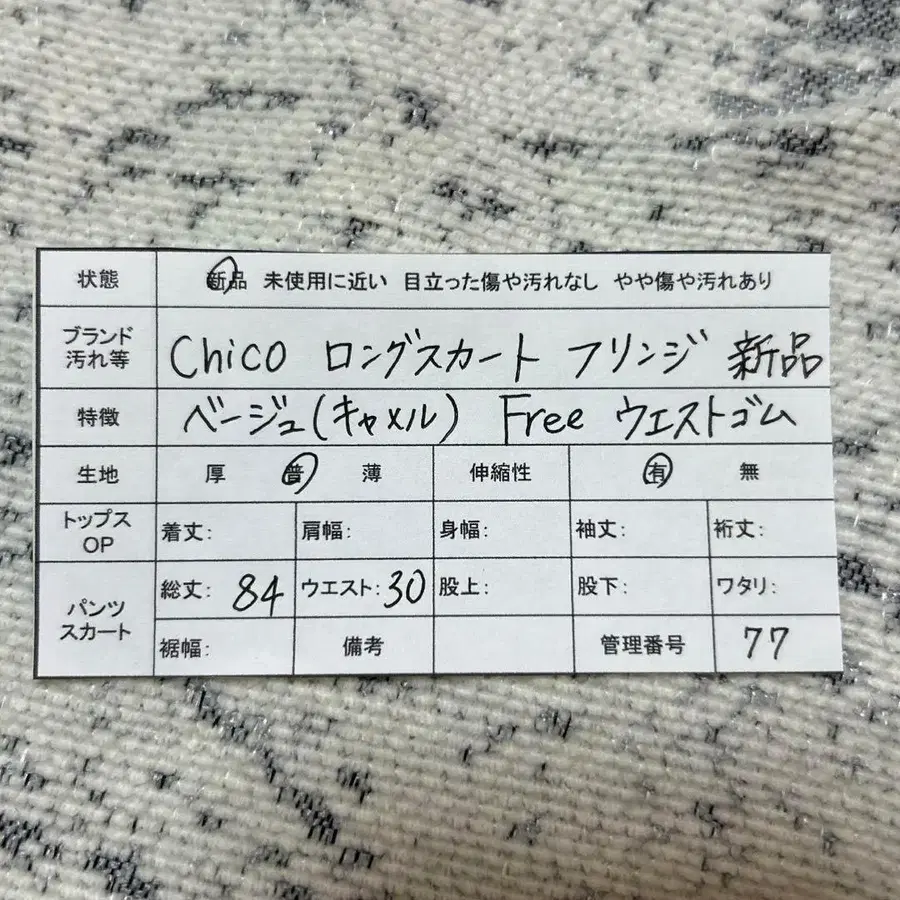 状態 新品 未使用に近い 目立った傷や汚れなし やや傷や汚れあり
ブランド
汚れ等 Chico ロングスカート フリンジ 新品
特徴 ベージュ(キャメル) Free ウエストゴム
生地 厚 普 薄 伸縮性 有 無
トップス
OP 着丈: 肩幅: 身幅: 袖丈: 裄丈:
パンツ
スカート 総丈: 84 ウエスト: 30 股上: 股下: ワタリ:
裾幅: 備考 管理番号 77